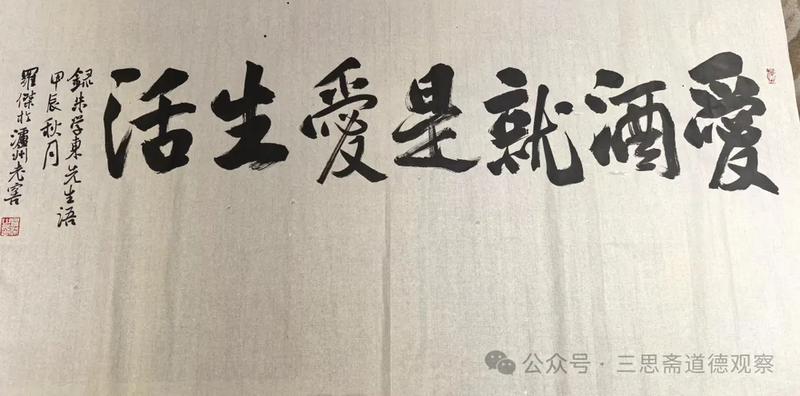 愛酒就是愛生活
録朱学東先生语
甲辰秋月
羅傑於瀘州老窖
公众号·三思斋道德观察